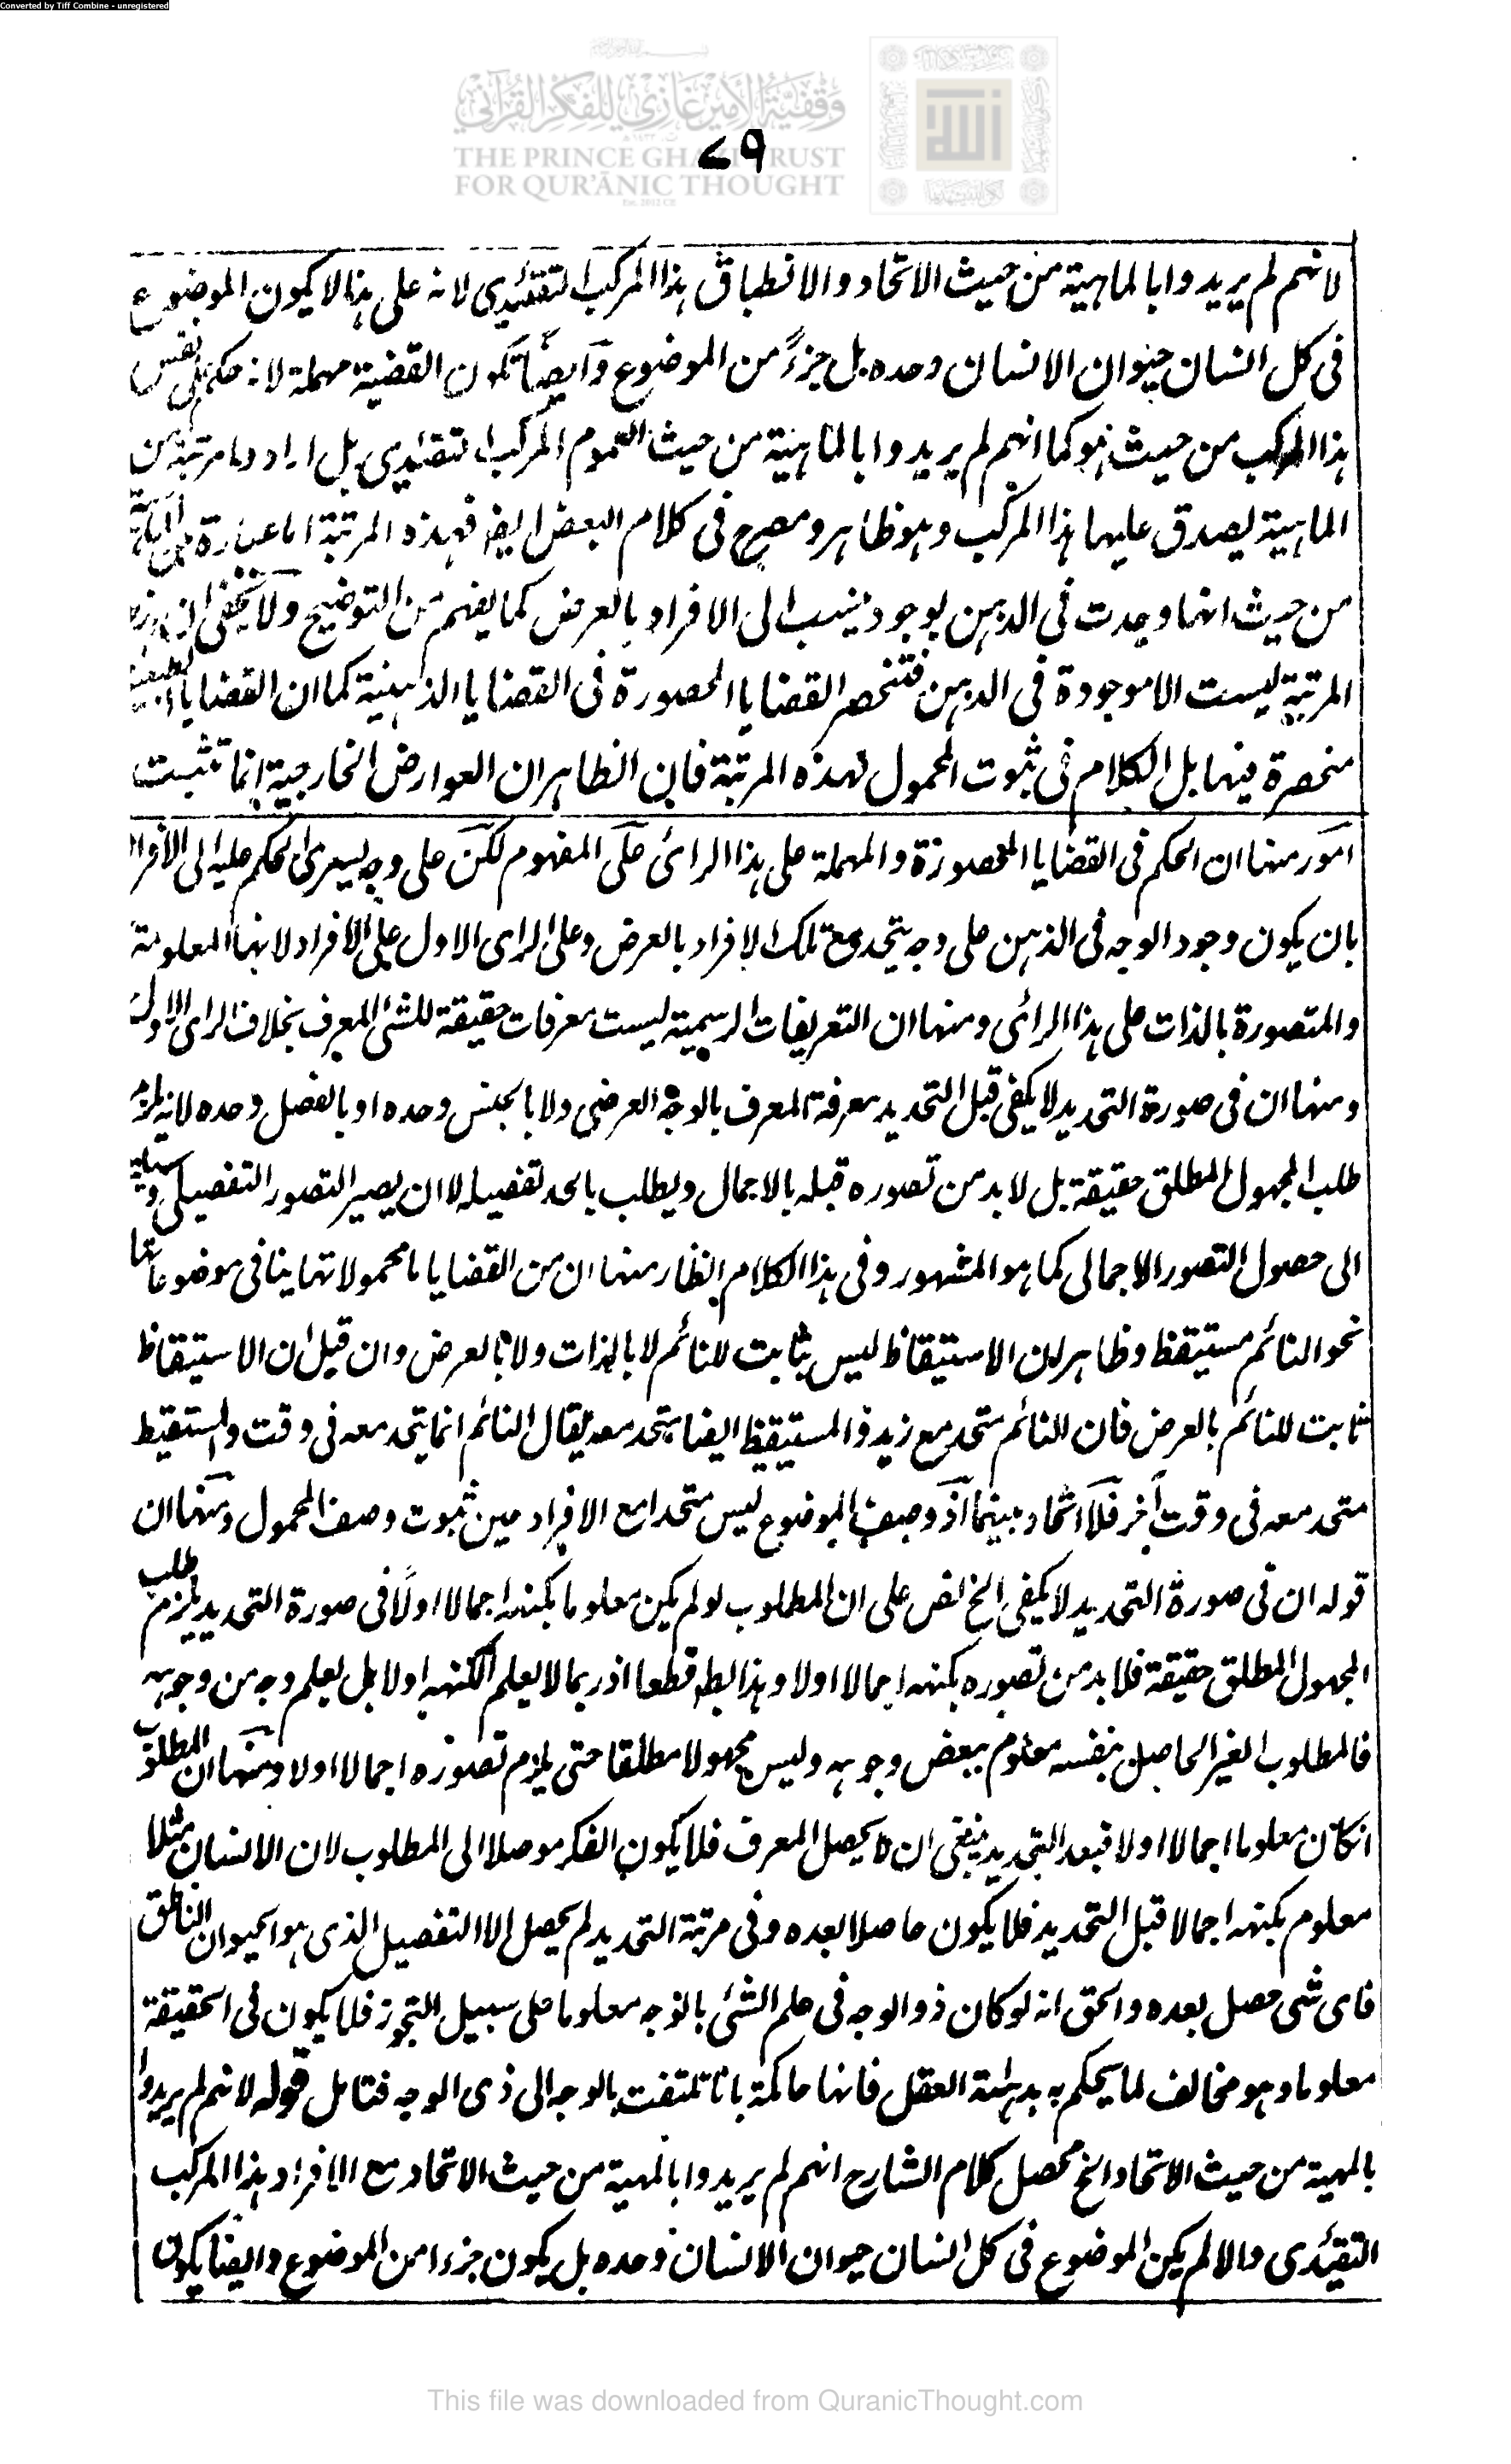 Converted by Tiff Combine - unregistered
وقفية الأمير غازي للفكر القرآني
THE PRINCE GHAZI TRUST
FOR QUR'ĀNIC THOUGHT
Est. 2012 CE
٧٩
لانهم لم يريدوا بالماهية من حيث الاتحاد والانطباق هذا المركب التقئيدى لانه على هذا لا يكون الموضوع
فى كل انسان حيوان الانسان وحده بل جزءً من الموضوع وايضًا تكون القضية مهملة لانه حكم على نفس
هذا المركب من حيث هو كما انهم لم يريدوا بالماهية من حيث العموم المركب التقئيدى بل ارادوا مرتبة من
الماهية يصدق عليها هذا المركب وهو ظاهر ومصرح فى كلام البعض ايضا فهذه المرتبة اما عبارة عن الماهية
من حيث انها وجدت فى الذهن بوجود ينسب الى الافراد بالعرض كما يفهم من التوضيح ولا يخفى ان هذه
المرتبة ليست الا موجودة فى الذهن فتنحصر القضايا المحصورة فى القضايا الذهنية كما ان القضايا الطبعية
منحصرة فيها بل الكلام فى ثبوت المحمول لهذه المرتبة فان الظاهر ان العوارض الخارجية انما تثبت
امور منها ان الحكم فى القضايا المحصورة والمهملة على هذا الرائ على المفهوم لكن على وجه يسرى الحكم عليه الى الافراد
بان يكون وجود الوجه فى الذهن على وجه يتحد مع تلك الافراد بالعرض وعلى الراى الاول على الافراد لانها المعلومة
والمتصورة بالذات على هذا الرائى ومنها ان التعريفات الرسمية ليست معرفات حقيقة للشئ المعرف بخلاف الراى الاول
ومنها ان فى صورة التحديد لا يكفى قبل التحديد معرفة المعرف بالوجه العرضى ولا بالجنس وحده او بالفصل وحده لانه يلزم
طلب المجهول المطلق حقيقة بل لا بد من تصوره قبله بالاجمال ويطلب بالحد تفصيله لا ان يصير التصور التفصيلى وسيلة
الى حصول التصور الاجمالى كما هو المشهور وفى هذا الكلام انظار منها ان من القضايا ما محمولاتها ينافى موضوعاتها
نحو النائم مستيقظ وظاهر ان الاستيقاظ ليس بثابت للنائم لا بالذات ولا بالعرض وان قيل ان الاستيقاظ
ثابت للنائم بالعرض فان النائم متحد مع زيد والمستيقظ ايضا يتحد معه يقال النائم انما يتحد معه فى وقت والمستقيظ
متحد معه فى وقت اخر فلا اتحاد بينهما اذ وصف الموضوع ليس متحدا مع الافراد حين ثبوت وصف المحمول ومنها ان
قوله ان فى صورة التحديد لا يكفى الخ نص على ان المطلوب لو لم يكن معلوما بكنهه اجمالا اولًا فى صورة التحديد يلزم طلب
المجهول المطلق حقيقة فلا بد من تصوره بكنهه اجمالا اولا وهذا بط قطعا اذ ربما لا يعلم الكنه اولا بل يعلم وجه من وجوهه
فالمطلوب الغير الحاصل بنفسه معلوم ببعض وجوهه وليس مجهولا مطلقا حتى يلزم تصوره اجمالا اولا ومنها ان المطلوب
انكان معلوما اجمالا اولا فبعد التحديد ينبغى ان لا يحصل المعرف فلا يكون الفكر موصلا الى المطلوب لان الانسان مثلا
معلوم بكنهه اجمالا قبل التحديد فلا يكون حاصلا بعده وفى مرتبة التحديد لم يحصل الا التفصيل الذى هو الحيوان الناطق
فاى شى حصل بعده والحق انه لو كان ذو الوجه فى علم الشئ بالوجه معلوما على سبيل التجوز فلا يكون فى الحقيقة
معلوما وهو مخالف لما يحكم به بداهة العقل فانها حاكمة بانا نلتفت بالوجه الى ذى الوجه فتامل قوله لانهم لم يريدوا
بالمهية من حيث الاتحاد الخ محصل كلام الشارح انهم لم يريدوا بالمهية من حيث الاتحاد مع الافراد هذا المركب
التقيئدى والا لم يكن الموضوع فى كل انسان حيوان الانسان وحده بل يكون جزءا من الموضوع وايضا يكون
This file was downloaded from QuranicThought.com